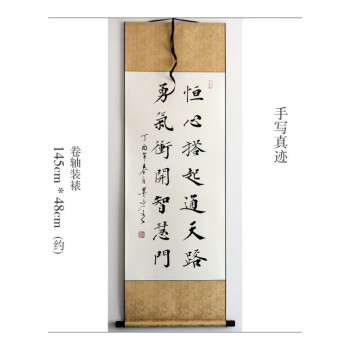 手写真迹
恒心搭起通天路
勇氣衝開智慧門
丁酉年春月
卷轴装裱
145cm * 48cm (约)